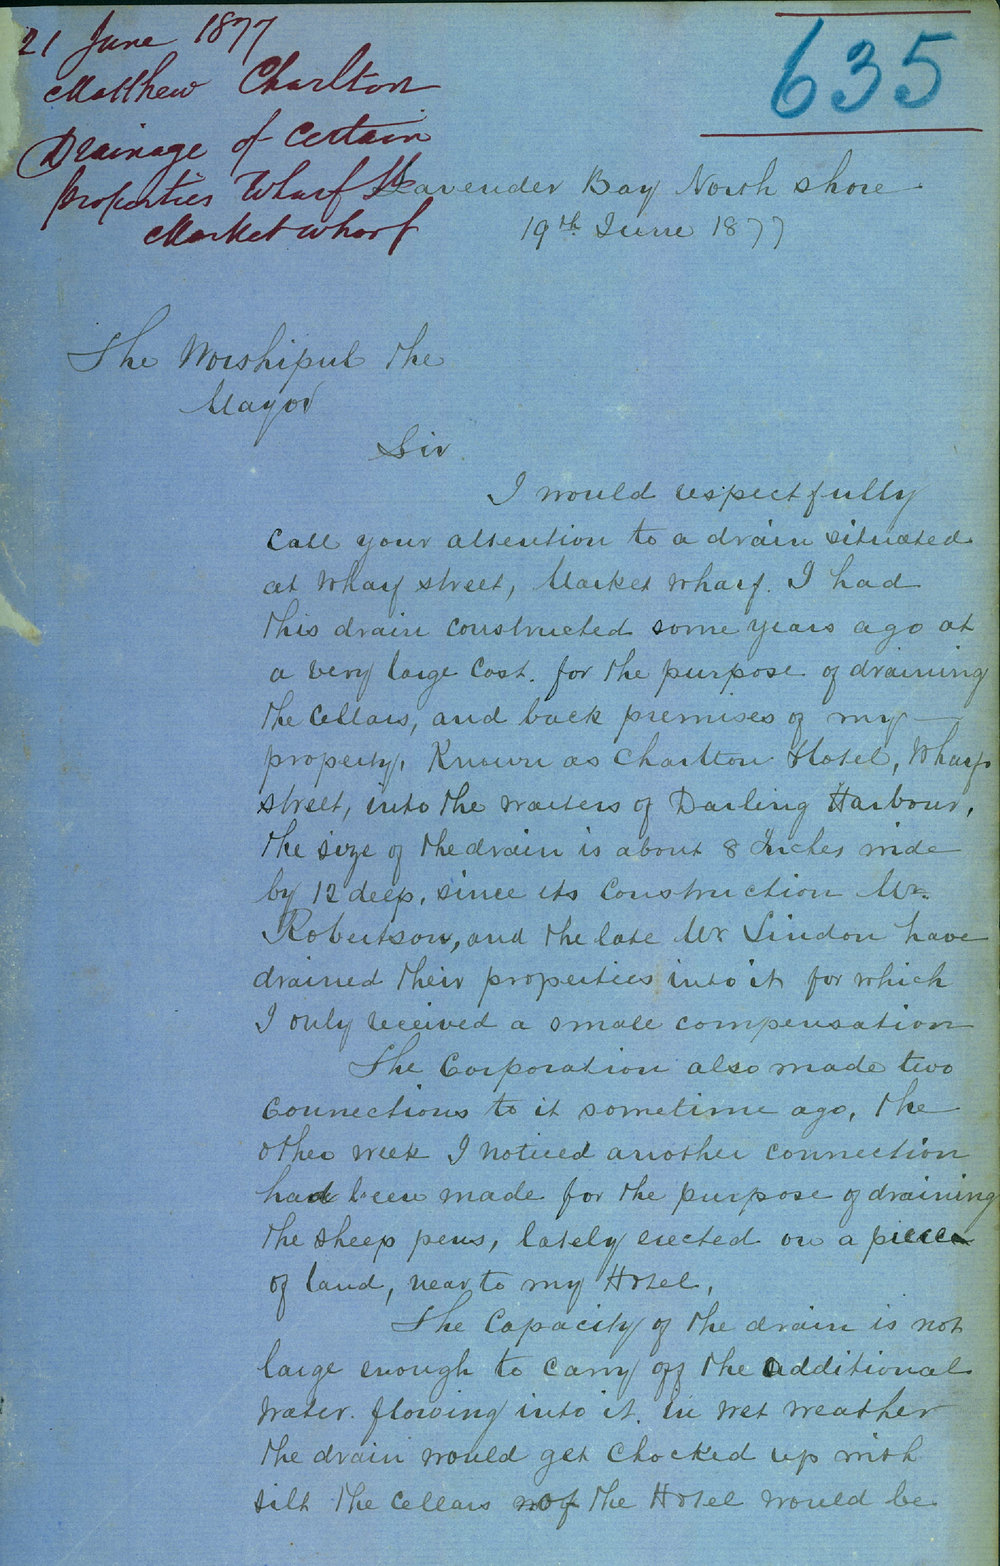 21 June 1877
Matthew Charlton
Drainage of Certain
properties Wharf St
Market Wharf
635
Lavender Bay North Shore
19th June 1877
The Worshipul the
Mayor
Sir
I would respectfully
Call your attention to a drain situated
at Wharf street, Market Wharf. I had
this drain constructed some years ago at
a very large Cost. for the purpose of draining
the Cellars, and back premises of my
property, Known as Charlton Hotel, Wharf
street, into the waters of Darling Harbour,
the size of the drain is about 8 Inches wide
by 12 deep, since its Construction Mr.
Robertson, and the late Mr Lindon have
drained their properties into it for which
I only received a small compensation
The Corporation also made two
Connections to it sometime ago, the
other week I noticed another connection
had been made for the purpose of draining
the sheep pens, lately erected on a piece
of land, near to my Hotel,
The Capacity of the drain is not
large enough to carry off the additional
Water flowing into it. In wet weather
the drain would get Chocked up with
silt the Cellars of the Hotel would be